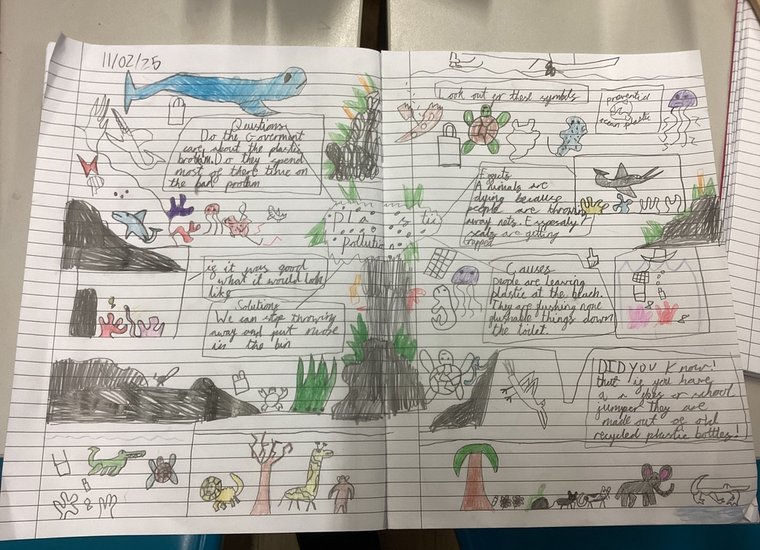 11/02/25
Questions
Do the Government
care about the plastic
broblam. Do they spend
most of there time on
the bad problam
is it was good
what it would look
like
Solutions
We can stop throwing
away and put more
in the bin
Plastic
Pollution
Look out or these symbols
prevented
ocean plastic
Effects
Animals are
dying because
people are throwing
away nets. Especially
seals are getting
trapped
Causes
people are leaving
plastic at the beach.
They are flushing none
flushable things down
the toilet.
DID YOU Know!
that if you have
a school
jumper they are
made out of old
recycled plastic bottles!